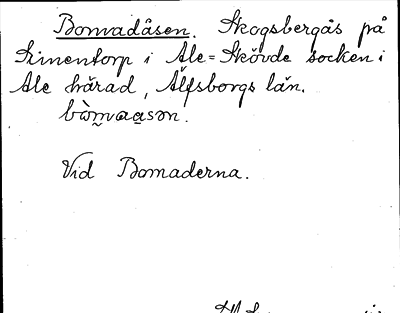 Bomadåsen. Skogsbergås på
Simentorp i Ale=Skövde socken i
Ale härad, Älfsborgs län.
Vid Bomaderna.